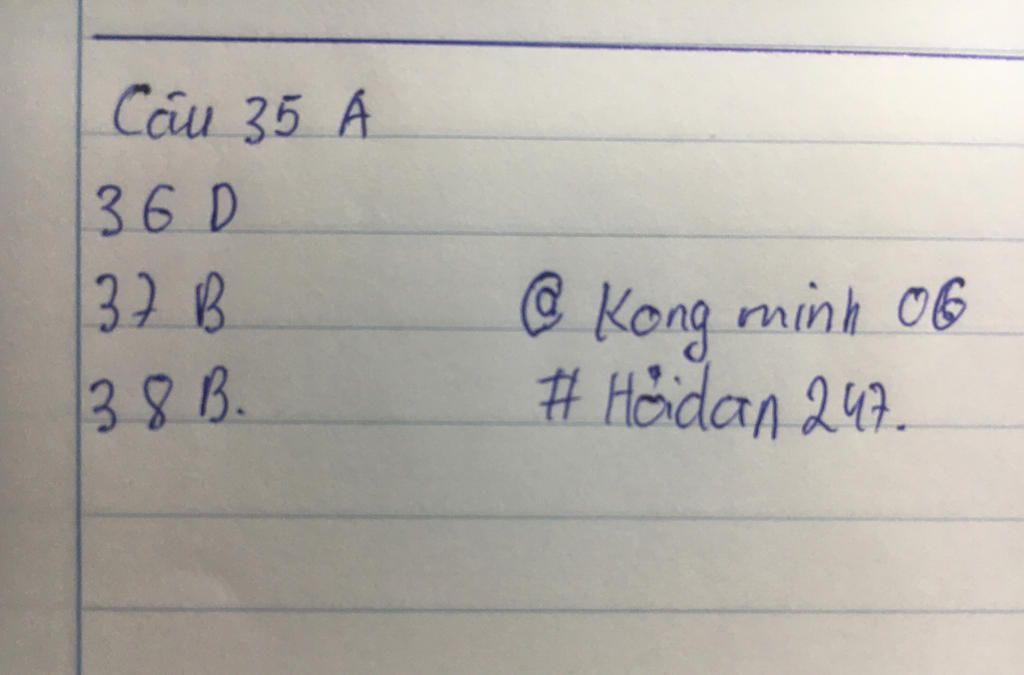 Câu 35 A
36 D
37 B
38 B.
@ Kong minh 06
# Hỏidan 247.